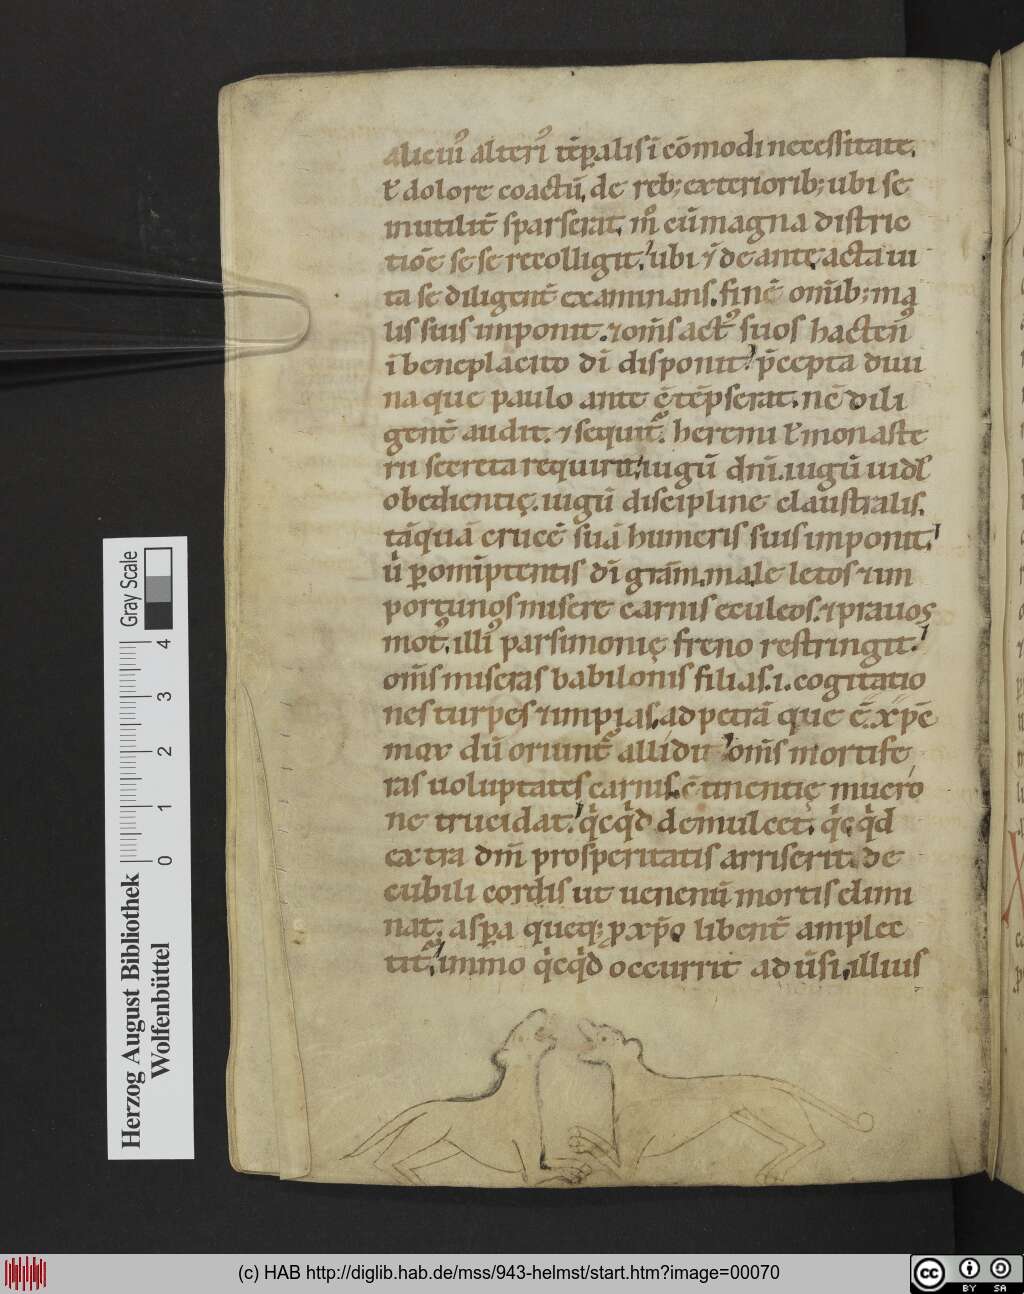 alicui᷒ alteri᷒ tēꝑalis ī cōmodi necessitate.
ł dolore coactū, de reb; exteriorib; ubi se
inutilit̄ sparserat, in̄ eū magna distric
tiōe se se recolligit. ubi ⁊̄ de ante acta ui
ta se diligent̄ examinans. finē om̄ib; ma
lis suis imponit. ⁊ om̄s act᷒ suos hacten᷒
ī beneplacito dī disponit. p̄cepta diui
na que paulo ante ētēpserat. nē dili
gent̄ audit. ⁊ sequit̄. heremi ł monaste
rii secreta requirit, iugū dnī. iugū uidł
obedientię. iugū discipline claustralis.
tāquā crucē suā humeris suis imponit.
ꝑ om̄iptentis dī grām. male letos ⁊ im
portunos misere carnis eculeos. ⁊ prauos
mot᷒ illi᷒ parsimonię freno restringit.
om̄s miseras babilonis filias .i. cogitatio
nes turpes ⁊ impias, ad petrā que ē xp̄c
mox dū oriunt̄ allidit om̄s mortife
ras uoluptates carnis ētinentię mucro
ne trucidat. qͥcqͥd demulcet. qͥcqͥd
extra dm̄ prosperitatis arriserit. de
cubili cordis ut uenenū mortis elimi
nat. aspa queq; ꝓ xp̄o libent̄ amplec
tit̄. immo qͥcqͥd occurrit aduersi, illius
Gray Scale
0 1 2 3 4
Herzog August Bibliothek
Wolfenbüttel
(c) HAB http://diglib.hab.de/mss/943-helmst/start.htm?image=00070
cc BY SA